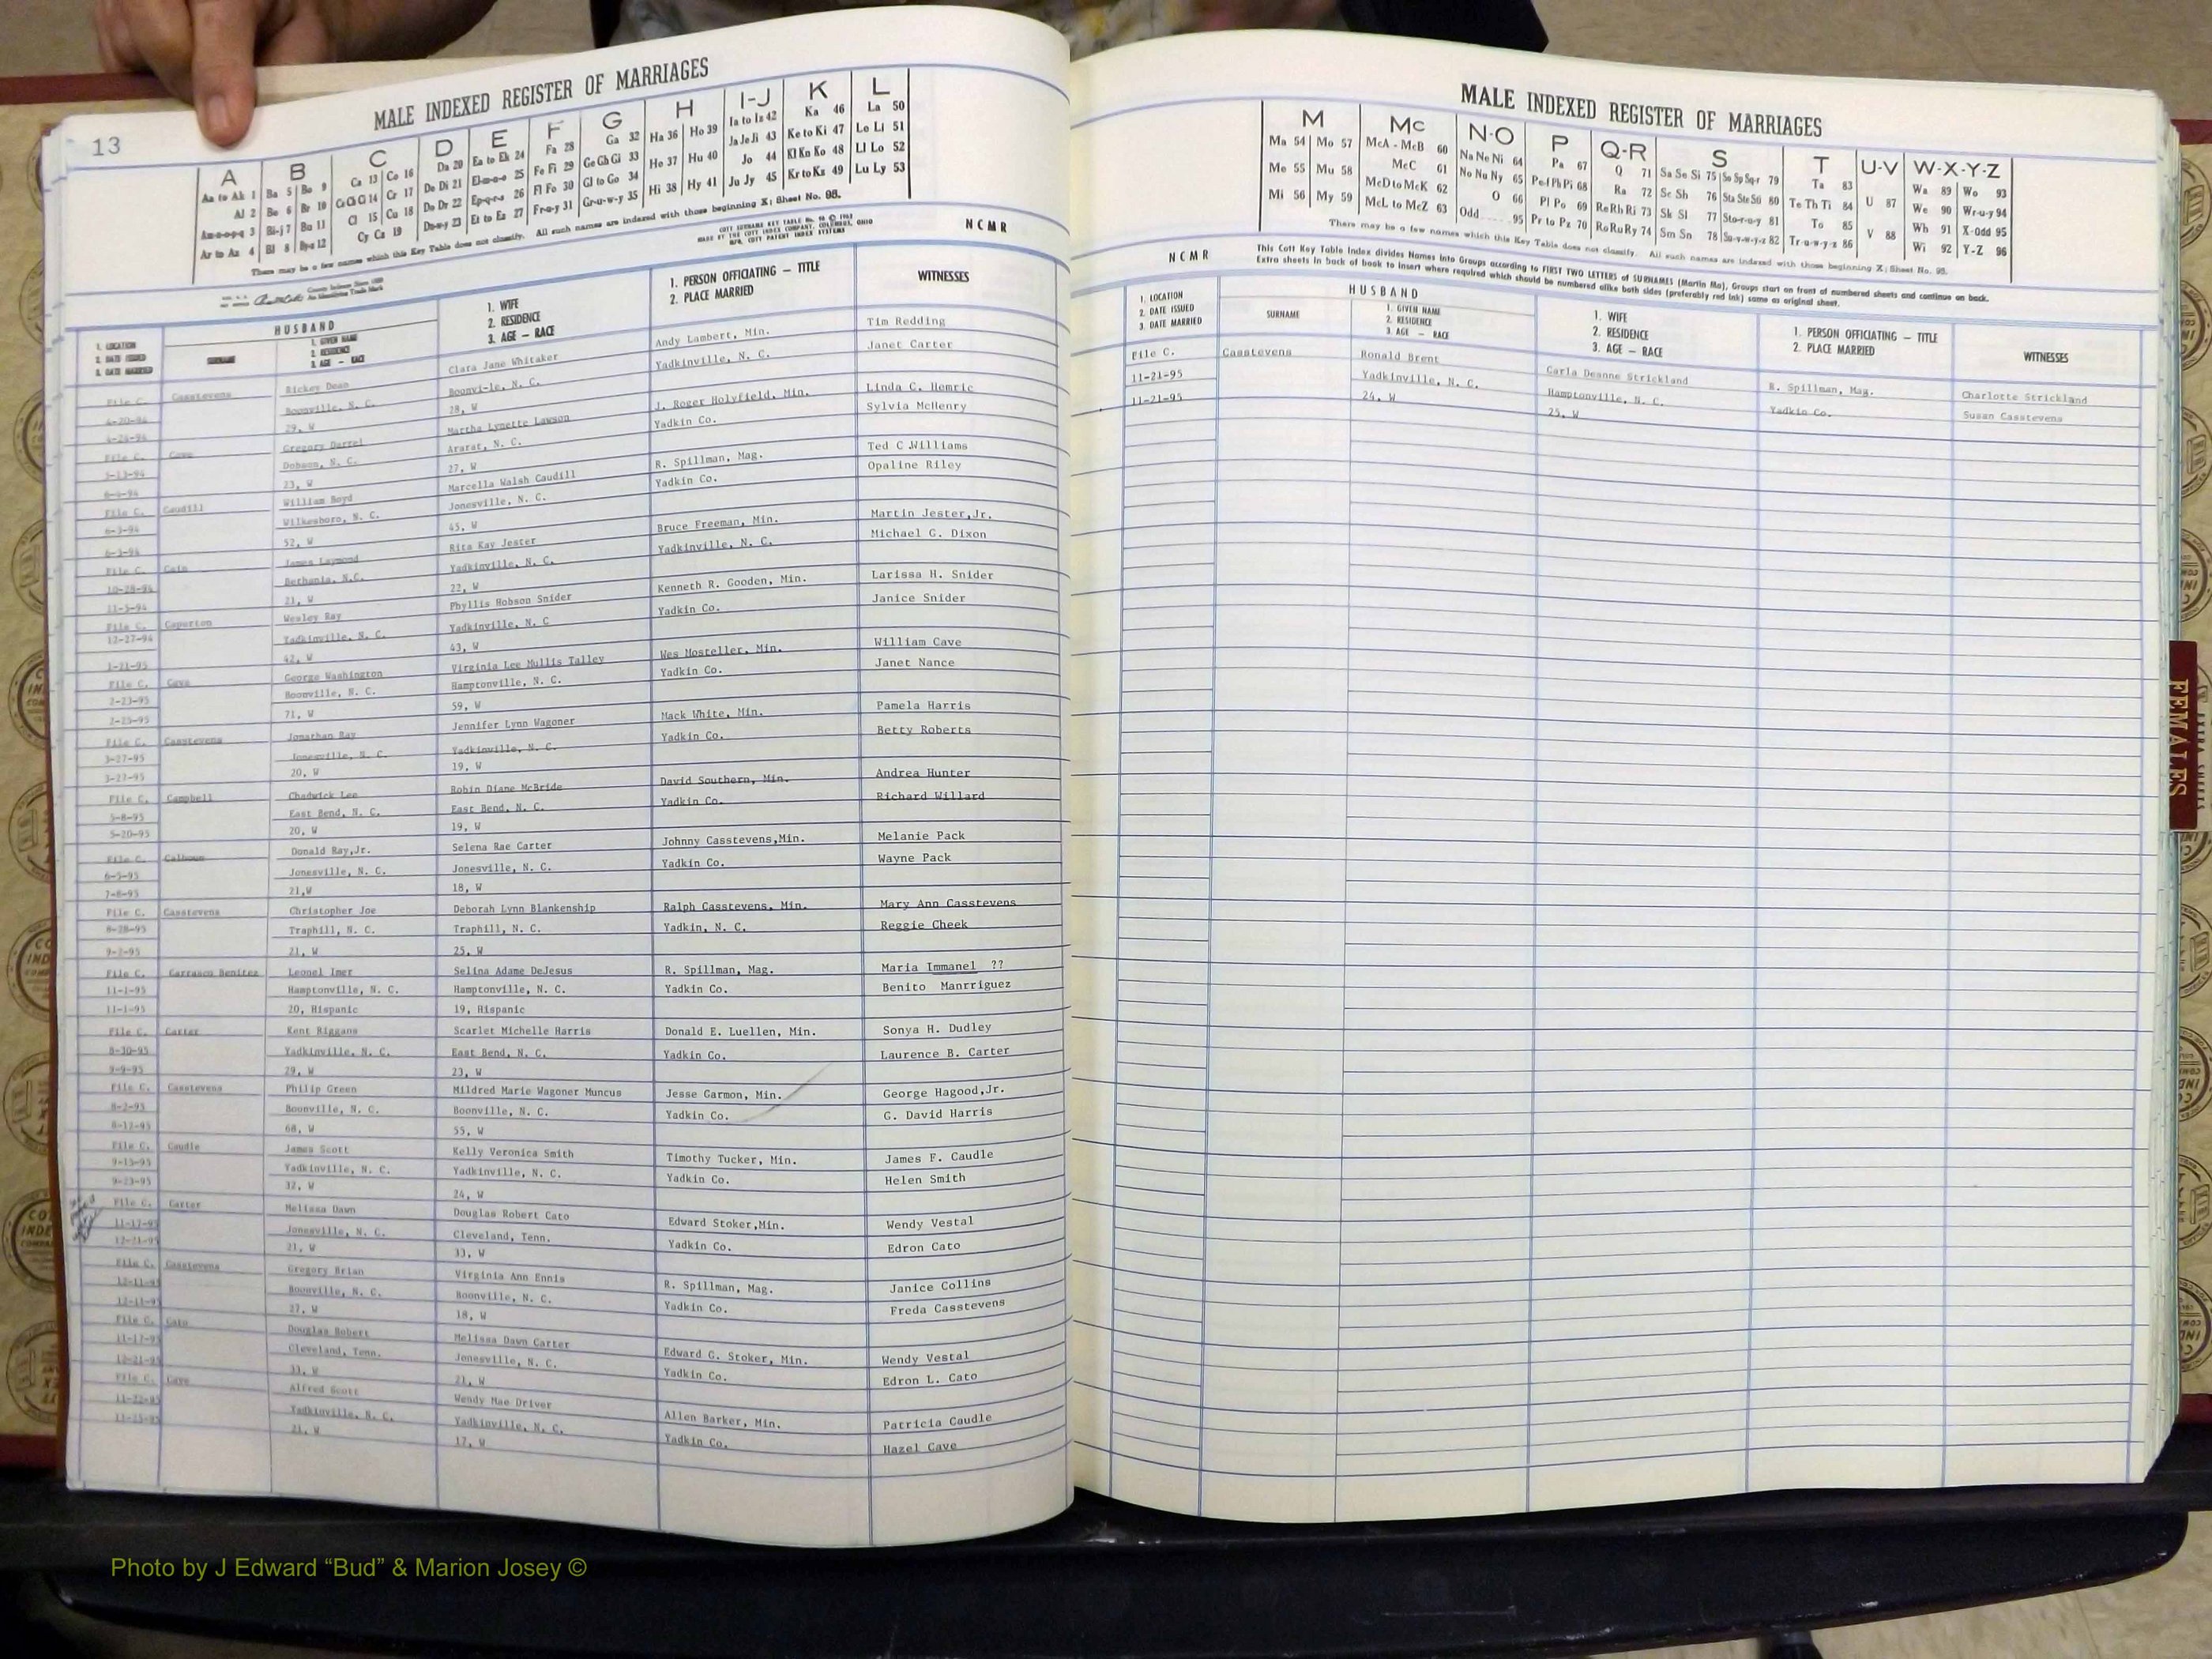 13
MALE INDEXED REGISTER OF MARRIAGES
A B C D E F G H I-J K L
Aa to Ak 1 Ba 5 Bo 9 Ca 13 Co 16 Da 20 Ea to Ek 24 Fa 28 Ga 32 Ha 36 Ho 39 Ia to Iz 42 Ka 46 La 50
Al 2 Be 6 Br 10 Ce Ch Ci 14 Cr 17 De Di 21 El-m-n-o 25 Fe Fi 29 Ge Gh Gi 33 He 37 Hu 40 Ja Je Ji 43 Ke to Ki 47 Le Li 51
Am-n-o-p-q 3 Bi-j 7 Bu 11 Cl 15 Cu 18 Do Dr 22 Ep-q-r-s 26 Fl Fo 30 Gl to Go 34 Hi 38 Hy 41 Jo 44 Kl Kn Ko 48 Ll Lo 52
Ar to Az 4 Bl 8 By-z 12 Cy Cz 19 Du-w-y 23 Et to Ez 27 Fr-u-y 31 Gr-u-w-y 35 Ju Jy 45 Kr to Kz 49 Lu Ly 53
There may be a few names which this Key Table does not classify. All such names are indexed with those beginning X; Sheet No. 98.
NCMR
HUSBAND
1. LOCATION 2. DATE ISSUED 3. DATE MARRIED
SURNAME
1. GIVEN NAME 2. RESIDENCE 3. AGE — RACE
1. WIFE 2. RESIDENCE 3. AGE — RACE
1. PERSON OFFICIATING — TITLE 2. PLACE MARRIED
WITNESSES
File C. Casstevens Rickey Dean Clara Jane Whitaker Andy Lambert, Min. Tim Redding
4-20-94 Boonville, N. C. Boonvi-le, N. C. Yadkinville, N. C. Janet Carter
4-24-94 29, W 28, W
File C. Cave Gregory Darrel Martha Lynette Lawson J. Roger Holyfield, Min. Linda C. Hemric
5-13-94 Dobson, N. C. Ararat, N. C. Yadkin Co. Sylvia McHenry
6-4-94 23, W 27, W
File C. Caudill William Boyd Marcella Walsh Caudill R. Spillman, Mag. Ted C.Williams
6-3-94 Wilkesboro, N. C. Jonesville, N. C. Yadkin Co. Opaline Riley
6-3-94 52, W 45, W
File C. Cain James Laymond Rita Kay Jester Bruce Freeman, Min. Martin Jester,Jr.
10-28-94 Bethania, N.C. Yadkinville, N. C. Yadkinville, N. C. Michael G. Dixon
11-5-94 21, W 22, W
File C. Caperton Wesley Ray Phyllis Hobson Snider Kenneth R. Gooden, Min. Larissa H. Snider
12-27-94 Yadkinville, N. C. Yadkinville, N. C Yadkin Co. Janice Snider
1-21-95 42, W 43, W
File C. Cave George Washington Virginia Lee Mullis Talley Wes Mosteller, Min. William Cave
2-23-95 Boonville, N. C. Hamptonville, N. C. Yadkin Co. Janet Nance
2-25-95 71, W 59, W
File C. Casstevens Jonathan Ray Jennifer Lynn Wagoner Mack White, Min. Pamela Harris
3-27-95 Jonesville, N. C. Yadkinville, N. C. Yadkin Co. Betty Roberts
3-27-95 20, W 19, W
File C. Campbell Chadwick Lee Robin Diane McBride David Southern, Min. Andrea Hunter
5-8-95 East Bend, N. C. East Bend, N. C. Yadkin Co. Richard Willard
5-20-95 20, W 19, W
File C. Calhoun Donald Ray,Jr. Selena Rae Carter Johnny Casstevens,Min. Melanie Pack
6-5-95 Jonesville, N. C. Jonesville, N. C. Yadkin Co. Wayne Pack
7-8-95 21,W 18, W
File C. Casstevens Christopher Joe Deborah Lynn Blankenship Ralph Casstevens, Min. Mary Ann Casstevens
8-28-95 Traphill, N. C. Traphill, N. C. Yadkin, N. C. Reggie Cheek
9-2-95 21, W 25, W
File C. Carrasco Benitez Leonel Imer Selina Adame DeJesus R. Spillman, Mag. Maria Immanel ??
11-1-95 Hamptonville, N. C. Hamptonville, N. C. Yadkin Co. Benito Manrriguez
11-1-95 20, Hispanic 19, Hispanic
File C. Carter Kent Riggans Scarlet Michelle Harris Donald E. Luellen, Min. Sonya H. Dudley
8-30-95 Yadkinville, N. C. East Bend, N. C. Yadkin Co. Laurence B. Carter
9-9-95 29, W 23, W
File C. Casstevens Philip Green Mildred Marie Wagoner Muncus Jesse Garmon, Min. George Hagood,Jr.
8-2-95 Boonville, N. C. Boonville, N. C. Yadkin Co. G. David Harris
8-12-95 68, W 55, W
File C. Caudle James Scott Kelly Veronica Smith Timothy Tucker, Min. James F. Caudle
9-15-95 Yadkinville, N. C. Yadkinville, N. C. Yadkin Co. Helen Smith
9-23-95 32, W 24, W
File C. Carter Melissa Dawn Douglas Robert Cato Edward Stoker,Min. Wendy Vestal
11-17-95 Jonesville, N. C. Cleveland, Tenn. Yadkin Co. Edron Cato
12-21-95 21, W 33, W
File C. Casstevens Gregory Brian Virginia Ann Ennis R. Spillman, Mag. Janice Collins
12-11-95 Boonville, N. C. Boonville, N. C. Yadkin Co. Freda Casstevens
12-11-95 27, W 18, W
File C. Cato Douglas Robert Melissa Dawn Carter Edward G. Stoker, Min. Wendy Vestal
11-17-95 Cleveland, Tenn. Jonesville, N. C. Yadkin Co. Edron L. Cato
12-21-95 33, W 21, W
File C. Cave Alfred Scott Wendy Mae Driver Allen Barker, Min. Patricia Caudle
11-22-95 Yadkinville, N. C. Yadkinville, N. C. Yadkin Co. Hazel Cave
11-25-95 21, W 17, W
MALE INDEXED REGISTER OF MARRIAGES
M Mc N-O P Q-R S T U-V W-X-Y-Z
Ma 54 Mo 57 McA - McB 60 Na Ne Ni 64 Pa 67 Q 71 Sa Se Si 75 So Sp Sq-r 79 Ta 83 U 87 Wa 89 Wo 93
Me 55 Mu 58 McC 61 No Nu Ny 65 Pe-f Ph Pi 68 Ra 72 Sc Sh 76 Sta Ste Sti 80 Te Th Ti 84 V 88 We 90 Wr-u-y 94
Mi 56 My 59 McD to McK 62 O 66 Pl Po 69 Re Rh Ri 73 Sk Sl 77 Sto-r-u-y 81 To 85 Wh 91 X-Odd 95
McL to McZ 63 Odd 95 Pr to Pz 70 Ro Ru Ry 74 Sm Sn 78 Su-v-w-y-z 82 Tr-u-w-y-z 86 Wi 92 Y-Z 96
There may be a few names which this Key Table does not classify. All such names are indexed with those beginning X; Sheet No. 98.
This Cott Key Table Index divides Names into Groups according to FIRST TWO LETTERS of SURNAMES (Martin Ma), Groups start on front of numbered sheets and continue on back.
Extra sheets in back of book to insert where required which should be numbered alike both sides (preferably red ink) same as original sheet.
NCMR
HUSBAND
1. LOCATION 2. DATE ISSUED 3. DATE MARRIED
SURNAME
1. GIVEN NAME 2. RESIDENCE 3. AGE — RACE
1. WIFE 2. RESIDENCE 3. AGE — RACE
1. PERSON OFFICIATING — TITLE 2. PLACE MARRIED
WITNESSES
File C. Casstevens Ronald Brent Carla Deanne Strickland R. Spillman, Mag. Charlotte Strickland
11-21-95 Yadkinville, N. C. Hamptonville, N. C. Yadkin Co. Susan Casstevens
11-21-95 24, W 25, W
FEMALES
Photo by J Edward “Bud” & Marion Josey ©